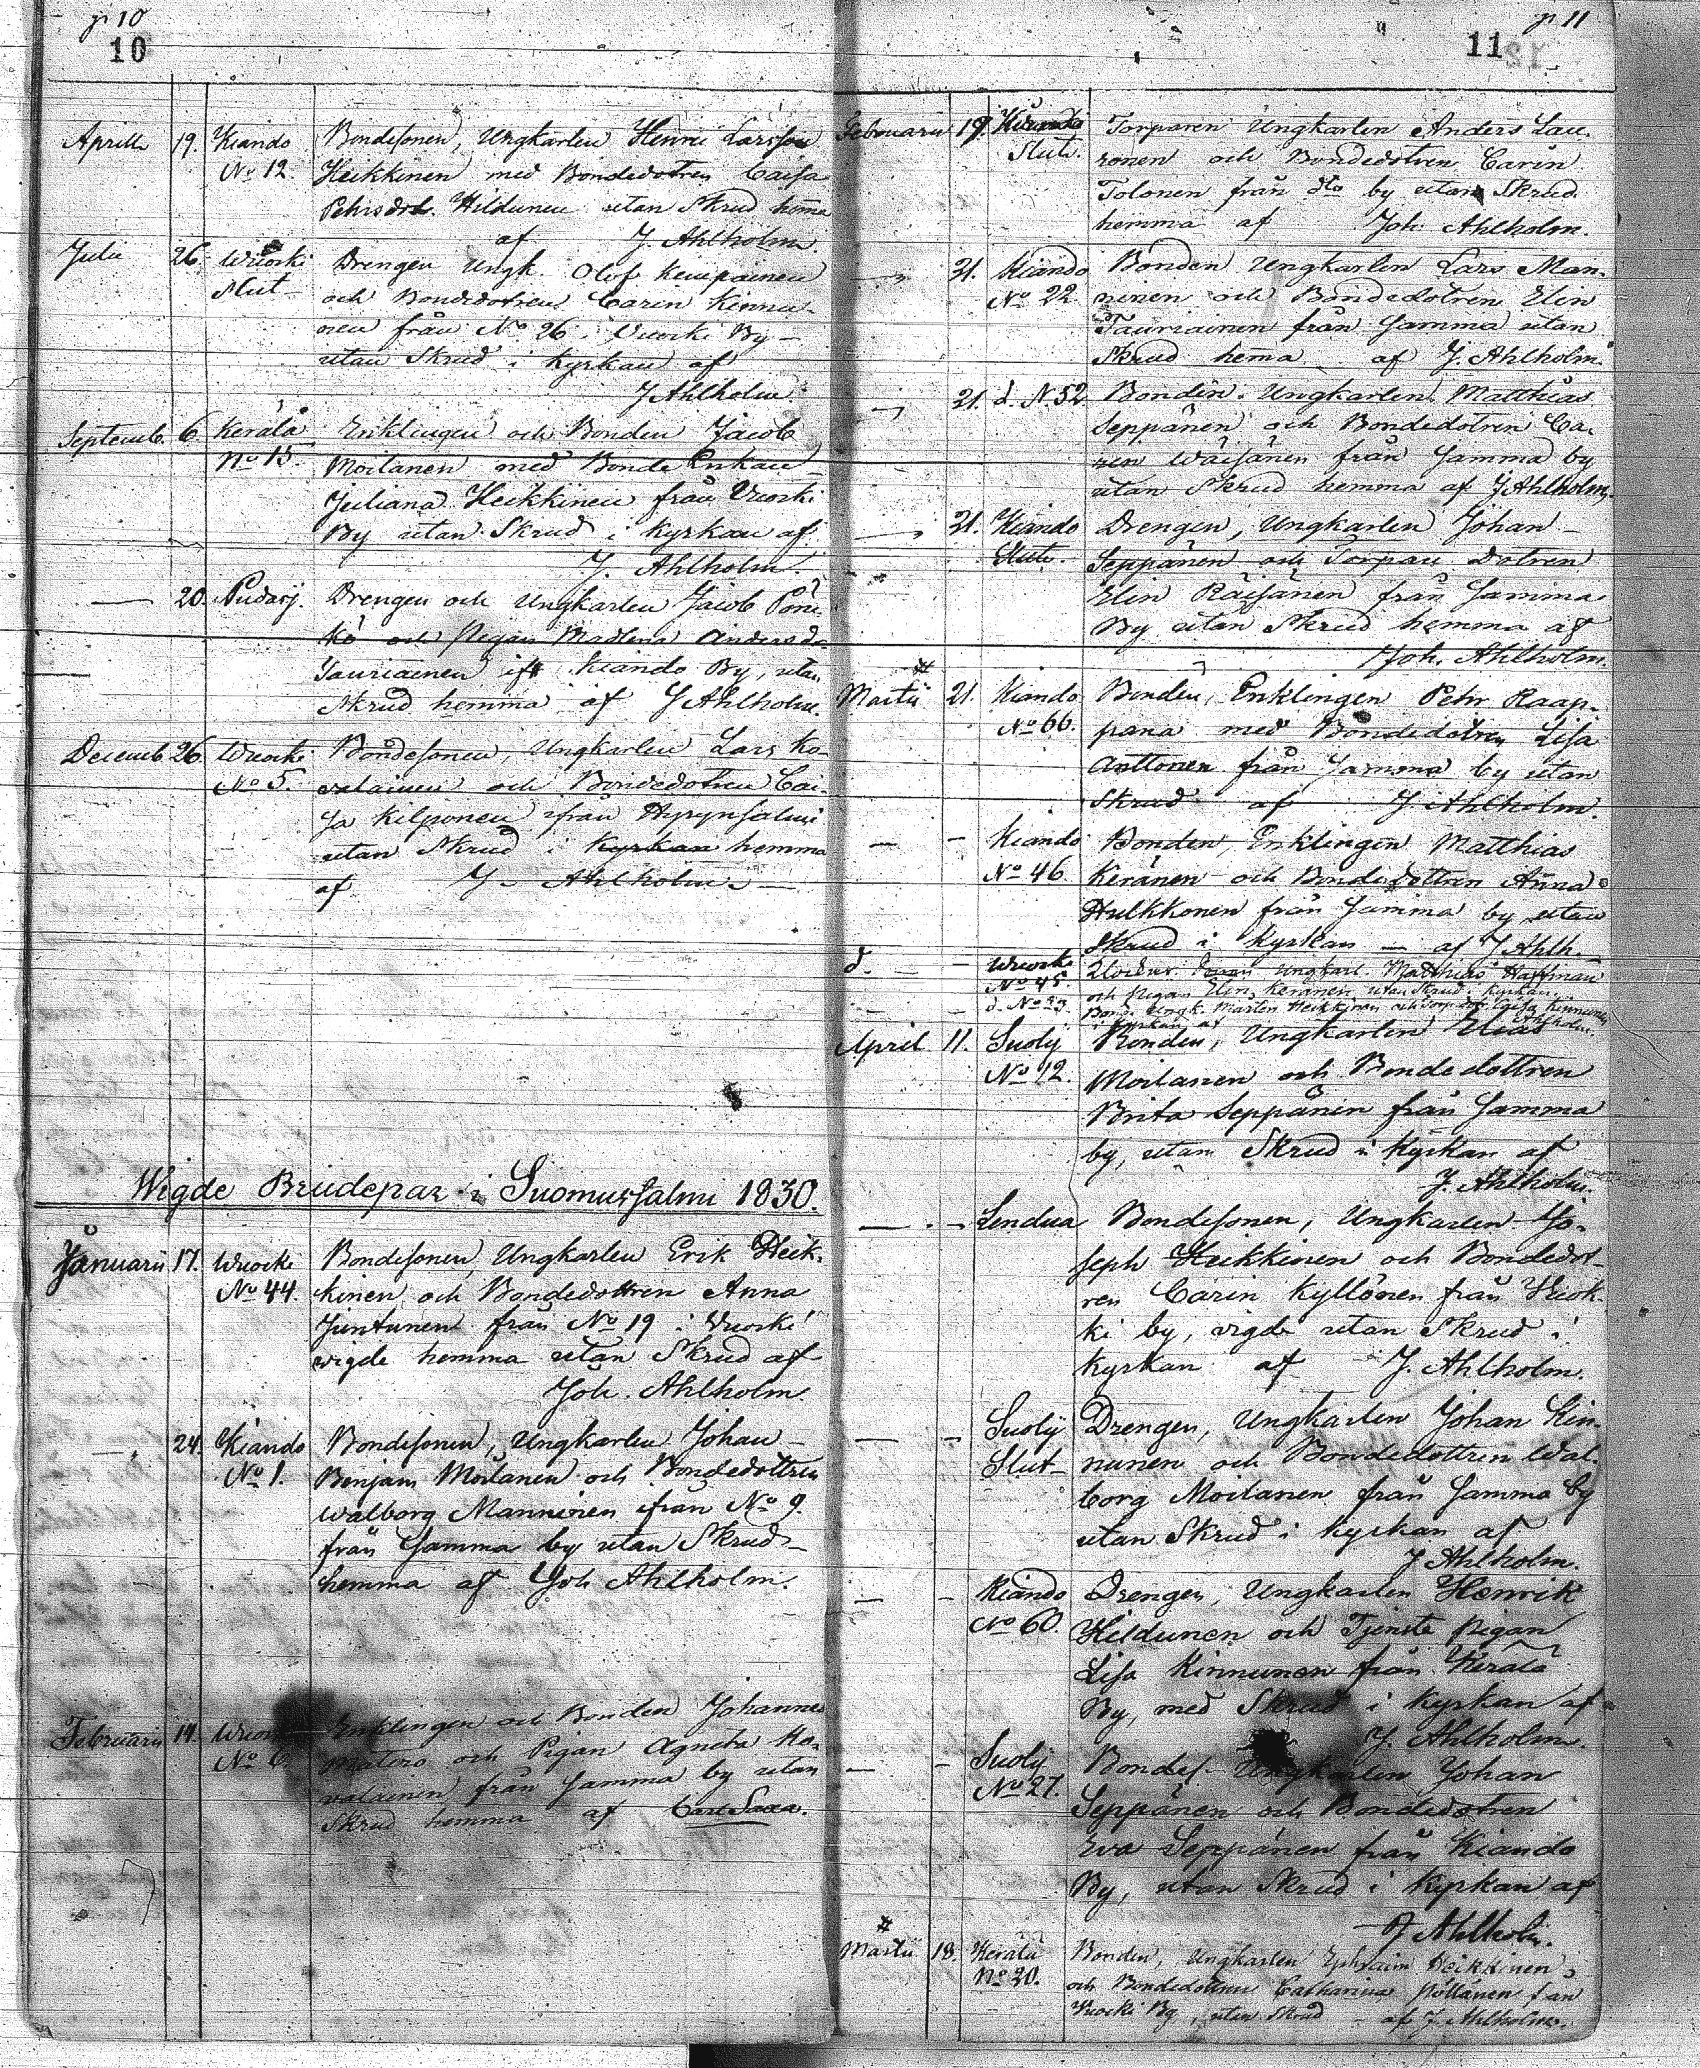 p 10
10
Aprill 19. Kiando Bondesonen, Ungkarlen Henric Larsson
No 12. Heikkinen med Bondedotren Caisa
Pehrsdot. Hildunen utan Skrud hemma
af J. Ahlholm
Julii 26. Wuoski Drengen Ungk. Olof Kemppainen
Slut och Bondedotren Carin Kinnu-
nen från No 26 i Vuocki By
utan Skrud i Kyrkan af
J Ahlholm.
Septemb. 6. Kerälä Enklingen och Bonden Jacob
No 15. Moilanen med Bonde Enkan
Juliana Heikkinen från Vuocki
By utan Skrud i Kyrkan af
J. Ahlholm.
— 20. Pudasj. Drengen och Ungkarlen Jacob
och Pigan Madlena Andersd.
Tauriainen ifr Kiando By, utan
Skrud hemma af J Ahlholm.
Decemb 26. Wuocki Bondesonen, Ungkarlen Lars Ko-
No 5. valainen och Bondedotren Cai-
sa Kilponen från Hyrynsalmi
utan Skrud i Kyrkan hemma
af J. Ahlholm. —
Wigde Brudepar i Suomussalmi 1830.
Januarii 17. Wuocki Bondesonen, Ungkarlen Erik Heik-
No 44. kinen och Bondedottren Anna
Juntunen från No 19 i Vuocki
vigde hemma utan Skrud af
Joh. Ahlholm
—, 24. Kiando Bondesonen, Ungkarlen Johan
No 1. Benjam Moilanen och Bondedottren
Walborg Manninen från No 9.
från Samma by utan Skrud
hemma af Joh Ahlholm.
Februarii 14. Wuocki Enklingen och Bonden Johannes
No 6 Matero och Pigan Agneta Ko-
valainen från Samma by utan
Skrud hemma af Carl Saxa.
p 11
11
Februarii 19. Kiando Torparen Ungkarlen Anders Lau-
Slut. ronen och Bondedotren Carin
Tolonen från dto by utan Skrud
hemma af Joh. Ahlholm.
—, 21. Kiando Bonden Ungkarlen Lars Man-
No 22 ninen och Bondedotren Elin
Tauriainen från Samma utan
Skrud hemma af J. Ahlholm.
—, 21. d. N. 52 Bonden. Ungkarlen. Matthias
Seppänen och Bondedotren Ca-
rin Wäisänen från Samma by
utan Skrud hemma af J Ahlholm.
—, 21. Kiando Drengen, Ungkarlen Johan
Slut. Seppänen och Torpare dotren
Elin Räisänen från Samma
By utan Skrud hemma af
Joh. Ahlholm.
#
Martii 21. Kiando Bonden, Enklingen Pehr Raap-
No 66. pana med Bondedotren Lisa
Anttonen från Samma by utan
Skrud af J. Ahlholm.
— — Kiando Bonden, Enklingen Matthias
No 46. Keränen och Bondedottren Anna
Hulkkonen från Samma by utan
Skrud i Kyrkan — af J Ahlh.
d. — Wuocki Ungkarl. Matthias Haffman
No 45. och Pigan Elin Keränen utan Skrud i Kyrkan.
d. No 33. Bond. Ungk. Mårten Heikkinen och Caisa Kinnunen
i Kyrkan af Ahlholm.
April 11. Suolij Bonden, Ungkarlen Elias
No 12. Moilanen och Bondedottren
Brita Seppänen från Samma
by, utan Skrud i Kyrkan af
J. Ahlholm.
— . — Lendua Bondesonen, Ungkarlen Jo-
seph Heikkinen och Bondedot-
ren Carin Kyllönen från Wuok-
ki by, vigde utan Skrud i
Kyrkan af J. Ahlholm.
— — Suolij Drengen, Ungkarlen Johan Kin-
Slut nunen och Bondedottren Wal-
borg Moilanen från Samma by
utan Skrud i Kyrkan af
J Ahlholm.
— — Kiando Drengen, Ungkarlen Henrik
No 60. Hildunen och Tjenste pigan
Lisa Kinnunen från Kerälä
By, med Skrud i Kyrkan af
J. Ahlholm.
— — Suolij Bondes. Ungkarlen Johan
No 27. Seppänen och Bondedotren
Eva Seppänen från Kiando
By, utan Skrud i Kyrkan af
J Ahlholm.
#
Martii 18. Kerälä Bonden, Ungkarlen Ephraim Heikkinen
No 20. och Bondedottren Catharina Pöllänen från
Vuocki By, utan Skrud — af J Ahlholm.